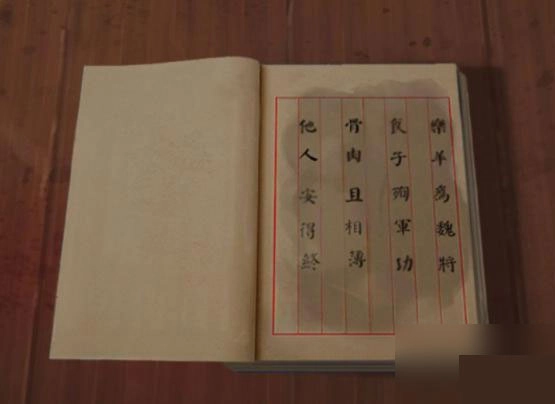 樂羊為魏將
食子殉軍功
骨肉且相薄
他人安得終